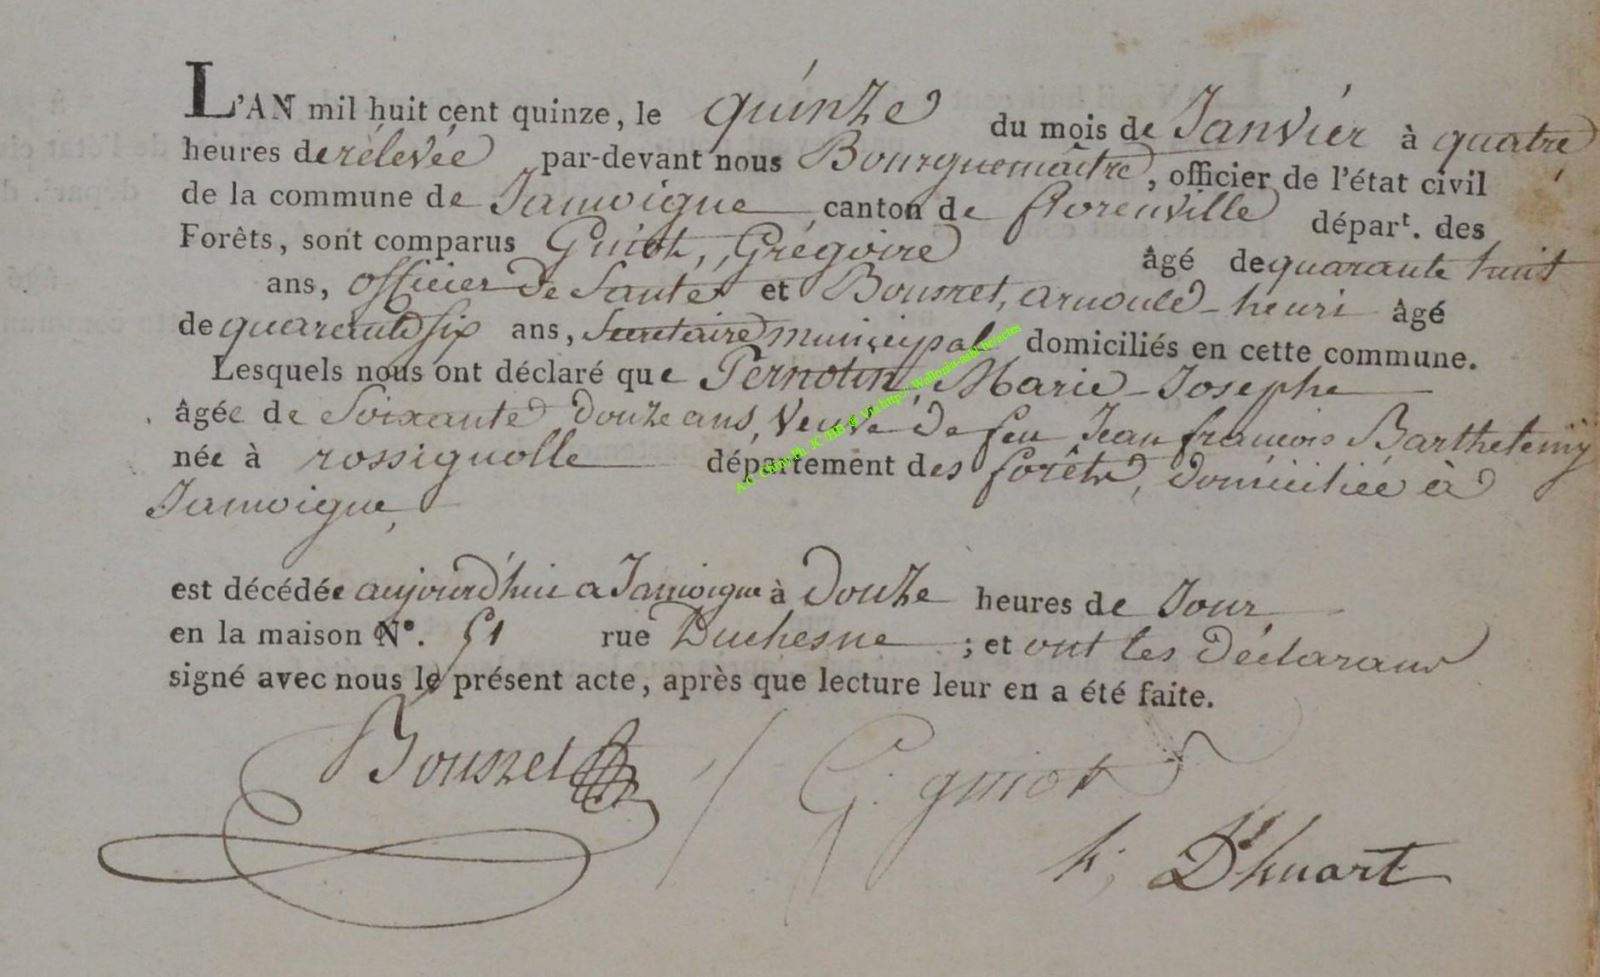 L'AN mil huit cent quinze, le quinze du mois de Janviér à quatre
heures de rélevée par-devant nous Bourguemaître, officier de l'état civil
de la commune de Jamoigne canton de florenville départ. des
Forêts, sont comparus Guiot, Grégoire âgé de quarante huit
ans, officier de Santé et Bousret, arnould-henri âgé
de quarante six ans, Secretaire municipal domiciliés en cette commune.
Lesquels nous ont déclaré que Pernotin, Marie-Josephe
âgée de Soixante douze ans, Veuve de feu Jean francois Barthelemÿ
née à rossignolle département des forêts, domiciliée à
Jamoigne,
est décédée aujourd'hui a Jamoigne à Douze heures de Jour,
en la maison N°. 51 rue Duchesne ; et ont les déclarans
signé avec nous le présent acte, après que lecture leur en a été faite.
Bousret G. guiot
h; D'huart